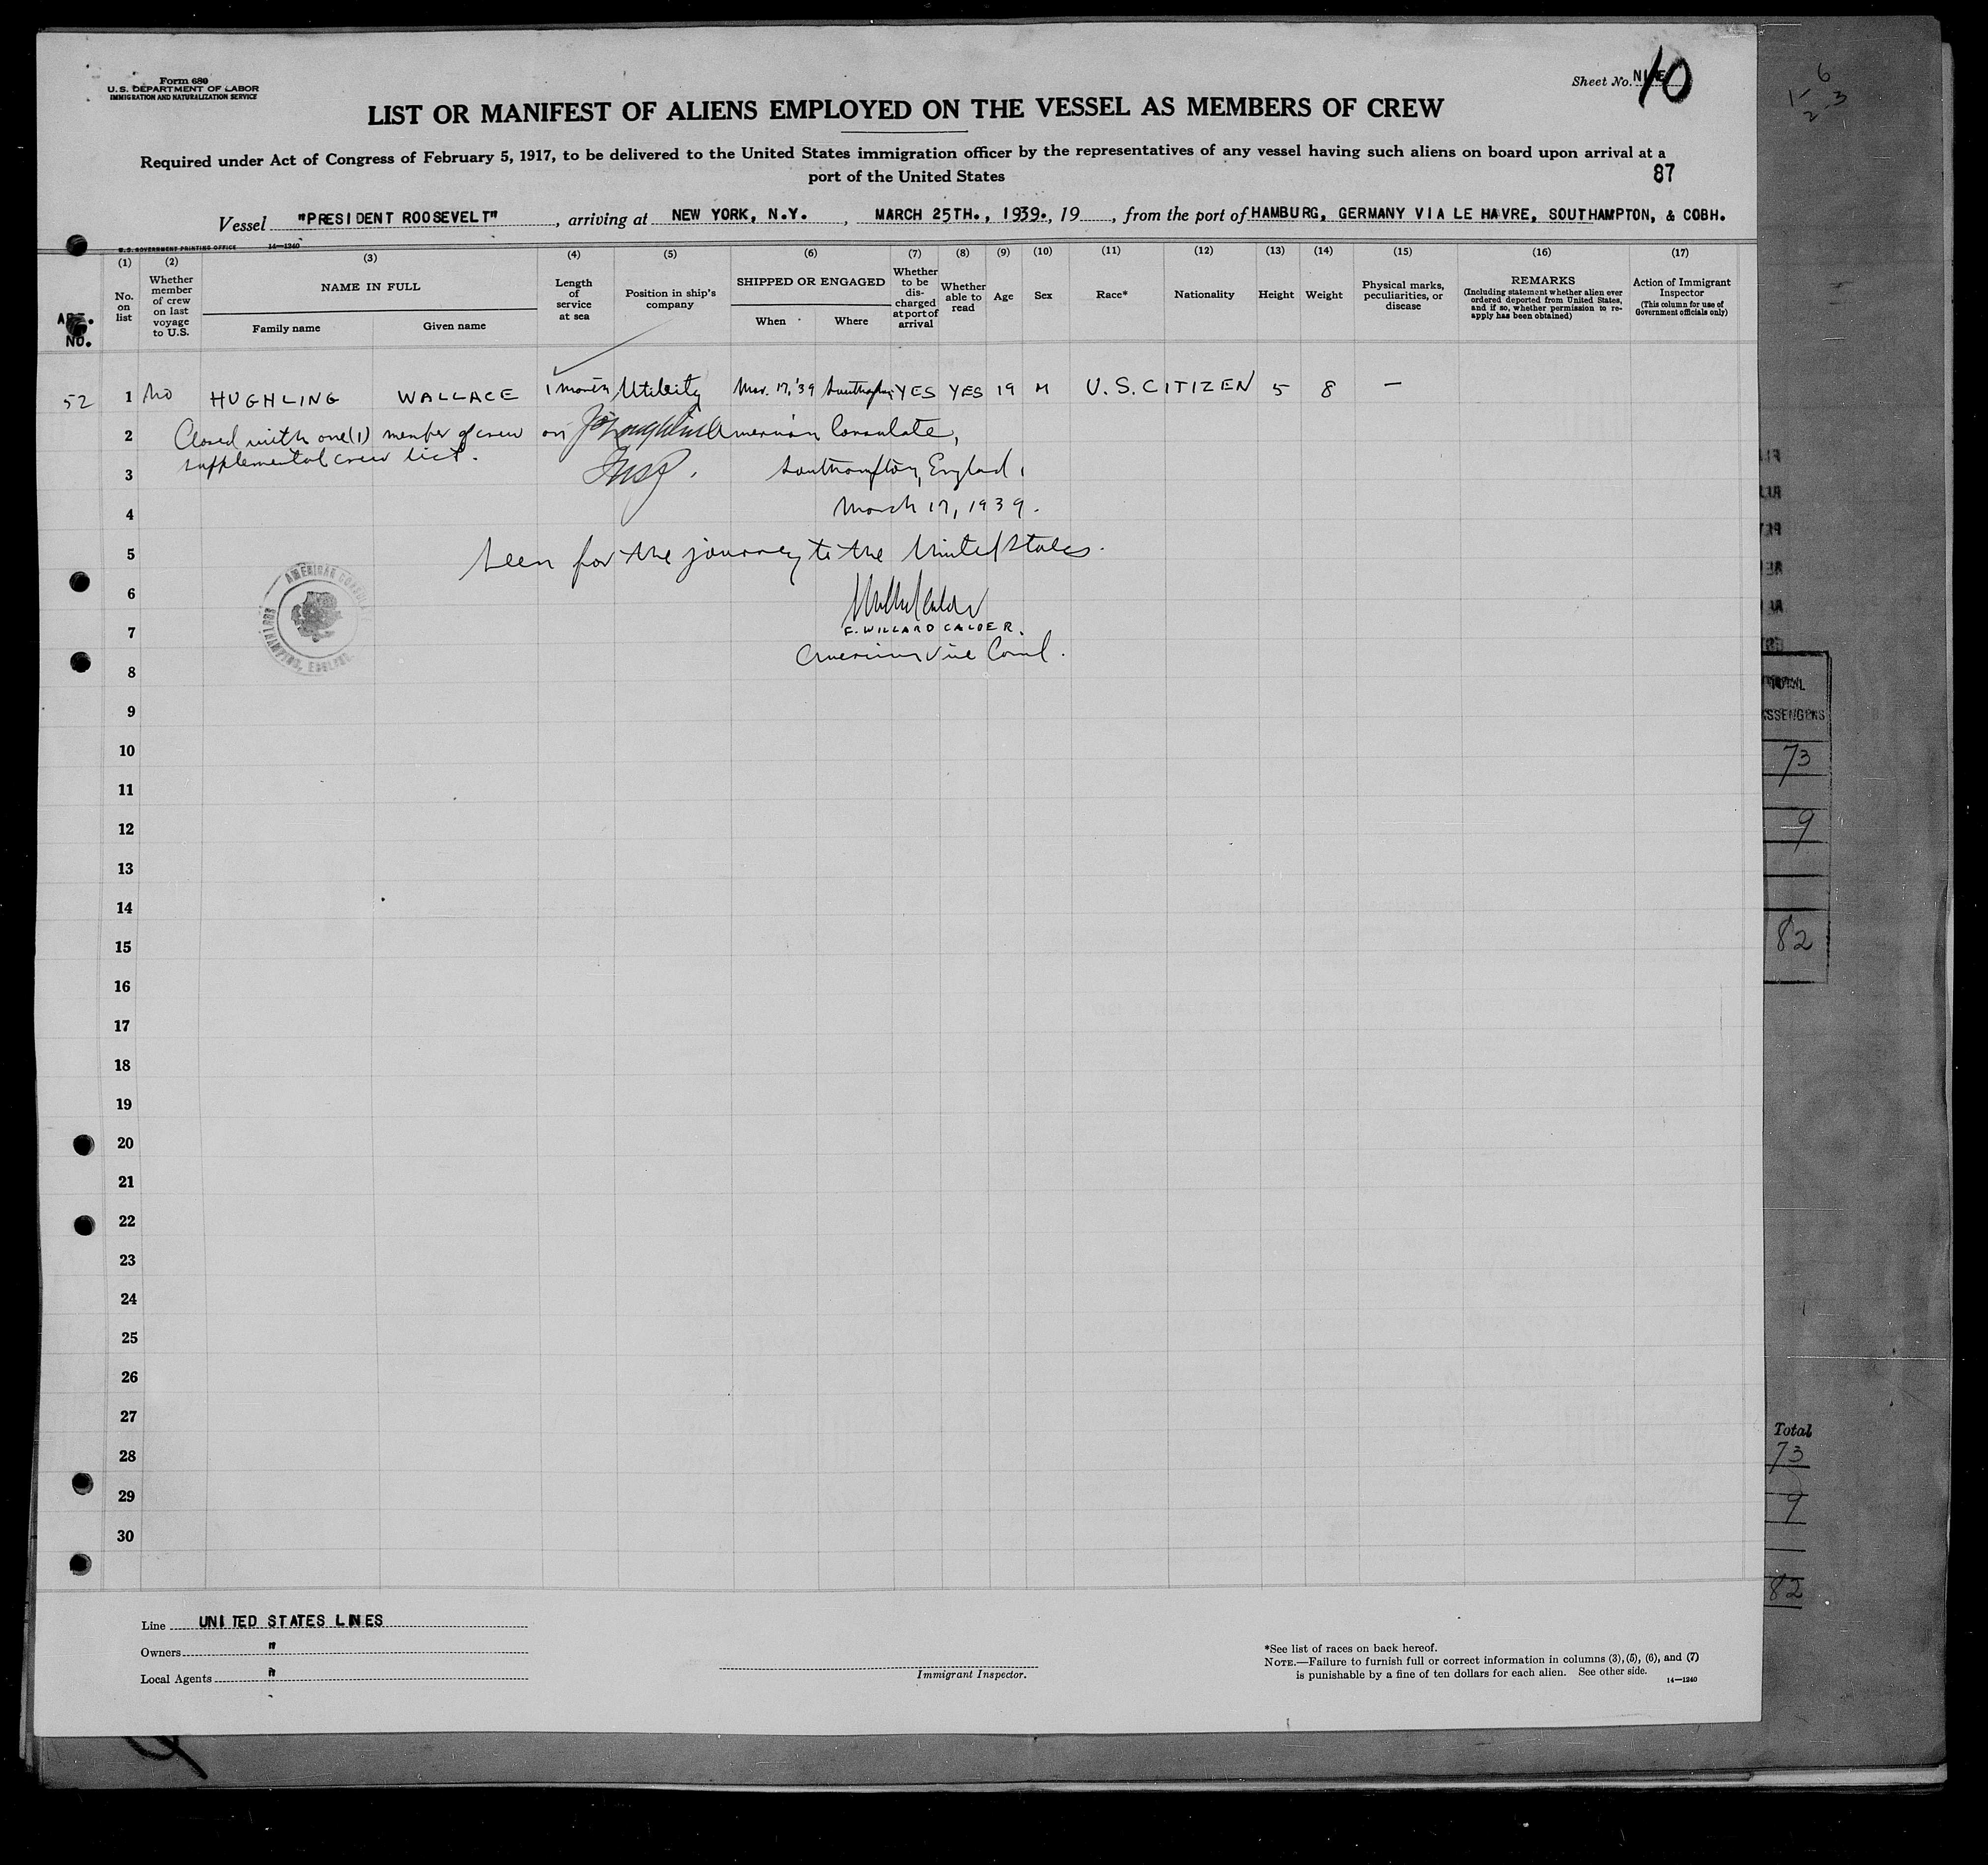 Form 680
U. S. DEPARTMENT OF LABOR
IMMIGRATION AND NATURALIZATION SERVICE
Sheet No. 10
LIST OR MANIFEST OF ALIENS EMPLOYED ON THE VESSEL AS MEMBERS OF CREW
Required under Act of Congress of February 5, 1917, to be delivered to the United States immigration officer by the representatives of any vessel having such aliens on board upon arrival at a
port of the United States
87
Vessel "PRESIDENT ROOSEVELT", arriving at NEW YORK, N.Y., MARCH 25TH., 1939., 19, from the port of HAMBURG, GERMANY VIA LE HAVRE, SOUTHAMPTON, & COBH.
U. S. GOVERNMENT PRINTING OFFICE 14—1240
NO.
(1) No. on list
(2) Whether member of crew on last voyage to U.S.
(3) NAME IN FULL
Family name Given name
(4) Length of service at sea
(5) Position in ship's company
(6) SHIPPED OR ENGAGED
When Where
(7) Whether to be discharged at port of arrival
(8) Whether able to read
(9) Age
(10) Sex
(11) Race*
(12) Nationality
(13) Height
(14) Weight
(15) Physical marks, peculiarities, or disease
(16) REMARKS
(Including statement whether alien ever ordered deported from United States, and if so, whether permission to re-apply has been obtained)
(17) Action of Immigrant Inspector
(This column for use of Government officials only)
52 1 No HUGHLING WALLACE 1 month Utility Mar. 17, '39 Southampton YES YES 19 M U.S. CITIZEN 5 8 —
2 Closed with one (1) member of crew on American Consulate,
supplemental crew list.
3 Insp. Southampton, England,
4 March 17, 1939.
5 Seen for the journey to the United States.
AMERICAN CONSULATE
SOUTHAMPTON, ENGLAND.
6
7 F. WILLARD CALDER.
American Vice Consul.
8
9
10
11
12
13
14
15
16
17
18
19
20
21
22
23
24
25
26
27
28
29
30
Line UNITED STATES LINES
Owners "
Local Agents "
Immigrant Inspector.
*See list of races on back hereof.
NOTE.—Failure to furnish full or correct information in columns (3), (5), (6), and (7)
is punishable by a fine of ten dollars for each alien. See other side.
14—1240
TOTAL
73
9
82
Total
73
9
82